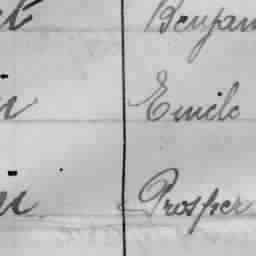 Benjam
Emile
Prosper